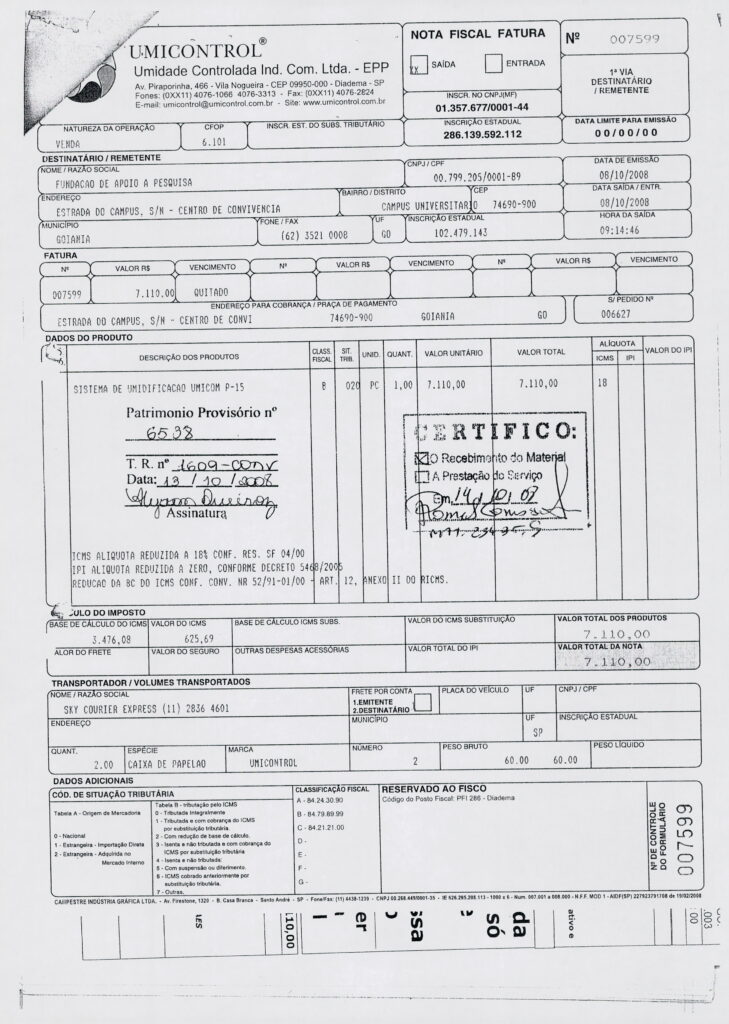 UMICONTROL®
Umidade Controlada Ind. Com. Ltda. - EPP
Av. Piraporinha, 466 - Vila Nogueira - CEP 09950-000 - Diadema - SP
Fones: (0XX11) 4076-1066 4076-3313 - Fax: (0XX11) 4076-2824
E-mail: umicontrol@umicontrol.com.br - Site: www.umicontrol.com.br
NOTA FISCAL FATURA
XX SAÍDA ENTRADA
INSCR. NO CNPJ(MF)
01.357.677/0001-44
INSCRIÇÃO ESTADUAL
286.139.592.112
Nº 007599
1ª VIA
DESTINATÁRIO
/ REMETENTE
DATA LIMITE PARA EMISSÃO
00/00/00
NATUREZA DA OPERAÇÃO CFOP INSCR. EST. DO SUBS. TRIBUTÁRIO
VENDA 6.101
DESTINATÁRIO / REMETENTE
NOME / RAZÃO SOCIAL CNPJ / CPF DATA DE EMISSÃO
FUNDACAO DE APOIO A PESQUISA 00.799.205/0001-89 08/10/2008
ENDEREÇO BAIRRO / DISTRITO CEP DATA SAÍDA / ENTR.
ESTRADA DO CAMPUS, S/N - CENTRO DE CONVIVENCIA CAMPUS UNIVERSITARIO 74690-900 08/10/2008
MUNICÍPIO FONE / FAX UF INSCRIÇÃO ESTADUAL HORA DA SAÍDA
GOIANIA (62) 3521 0008 GO 102.479.143 09:14:46
FATURA
Nº VALOR R$ VENCIMENTO Nº VALOR R$ VENCIMENTO Nº VALOR R$ VENCIMENTO
007599 7.110,00 QUITADO
ENDEREÇO PARA COBRANÇA / PRAÇA DE PAGAMENTO S/ PEDIDO Nº
ESTRADA DO CAMPUS, S/N - CENTRO DE CONVI 74690-900 GOIANIA GO 006627
DADOS DO PRODUTO
DESCRIÇÃO DOS PRODUTOS CLASS. FISCAL SIT. TRIB. UNID. QUANT. VALOR UNITÁRIO VALOR TOTAL ALÍQUOTA ICMS IPI VALOR DO IPI
SISTEMA DE UMIDIFICACAO UMICOM P-15 B 020 PC 1,00 7.110,00 7.110,00 18
Patrimonio Provisório nº
6538
T. R. nº 1609-CONV
Data: 13/10/2008
Assinatura
CERTIFICO:
O Recebimento do Material
A Prestação do Serviço
Em,
ICMS ALIQUOTA REDUZIDA A 18% CONF. RES. SF 04/00
IPI ALIQUOTA REDUZIDA A ZERO, CONFORME DECRETO 5468/2005
REDUCAO DA BC DO ICMS CONF. CONV. NR 52/91-01/00 - ART. 12, ANEXO II DO RICMS.
ULO DO IMPOSTO
BASE DE CÁLCULO DO ICMS VALOR DO ICMS BASE DE CÁLCULO ICMS SUBS. VALOR DO ICMS SUBSTITUIÇÃO VALOR TOTAL DOS PRODUTOS
3.476,08 625,69 7.110,00
ALOR DO FRETE VALOR DO SEGURO OUTRAS DESPESAS ACESSÓRIAS VALOR TOTAL DO IPI VALOR TOTAL DA NOTA
7.110,00
TRANSPORTADOR / VOLUMES TRANSPORTADOS
NOME / RAZÃO SOCIAL FRETE POR CONTA 1.EMITENTE 2.DESTINATÁRIO PLACA DO VEÍCULO UF CNPJ / CPF
SKY COURIER EXPRESS (11) 2836 4601
ENDEREÇO MUNICÍPIO UF INSCRIÇÃO ESTADUAL
SP
QUANT. ESPÉCIE MARCA NÚMERO PESO BRUTO PESO LÍQUIDO
2.00 CAIXA DE PAPELAO UMICONTROL 2 60.00 60.00
DADOS ADICIONAIS
CÓD. DE SITUAÇÃO TRIBUTÁRIA
Tabela A - Origem de Mercadoria
0 - Nacional
1 - Estrangeira - Importação Direta
2 - Estrangeira - Adquirida no
Mercado Interno
Tabela B - tributação pelo ICMS
0 - Tributada Integralmente
1 - Tributada e com cobrança do ICMS
por substituição tributária.
2 - Com redução de base de cálculo.
3 - Isenta e não tributada e com cobrança do
ICMS por substituição tributária
4 - Isenta e não tributada:
5 - Com suspensão ou diferimento.
6 - ICMS cobrado anteriormente por
substituição tributária.
7 - Outras.
CLASSIFICAÇÃO FISCAL
A - 84.24.30.90
B - 84.79.89.99
C - 84.21.21.00
D -
E -
F -
G -
RESERVADO AO FISCO
Código do Posto Fiscal: PFI 286 - Diadema
Nº DE CONTROLE
DO FORMULÁRIO
007599
CAMPESTRE INDÚSTRIA GRÁFICA LTDA. - Av. Firestone, 1320 - B. Casa Branca - Santo André - SP - Fone/Fax: (11) 4438-1239 - CNPJ 00.268.445/0001-35 - IE 626.285.298.113 - 1000 x 6 - Num. 007.001 a 008.000 - N.F.F. MOD 1 - AIDF(SP) 227923791708 de 19/02/2008
10,00
er
ssa
só
da
ativo e